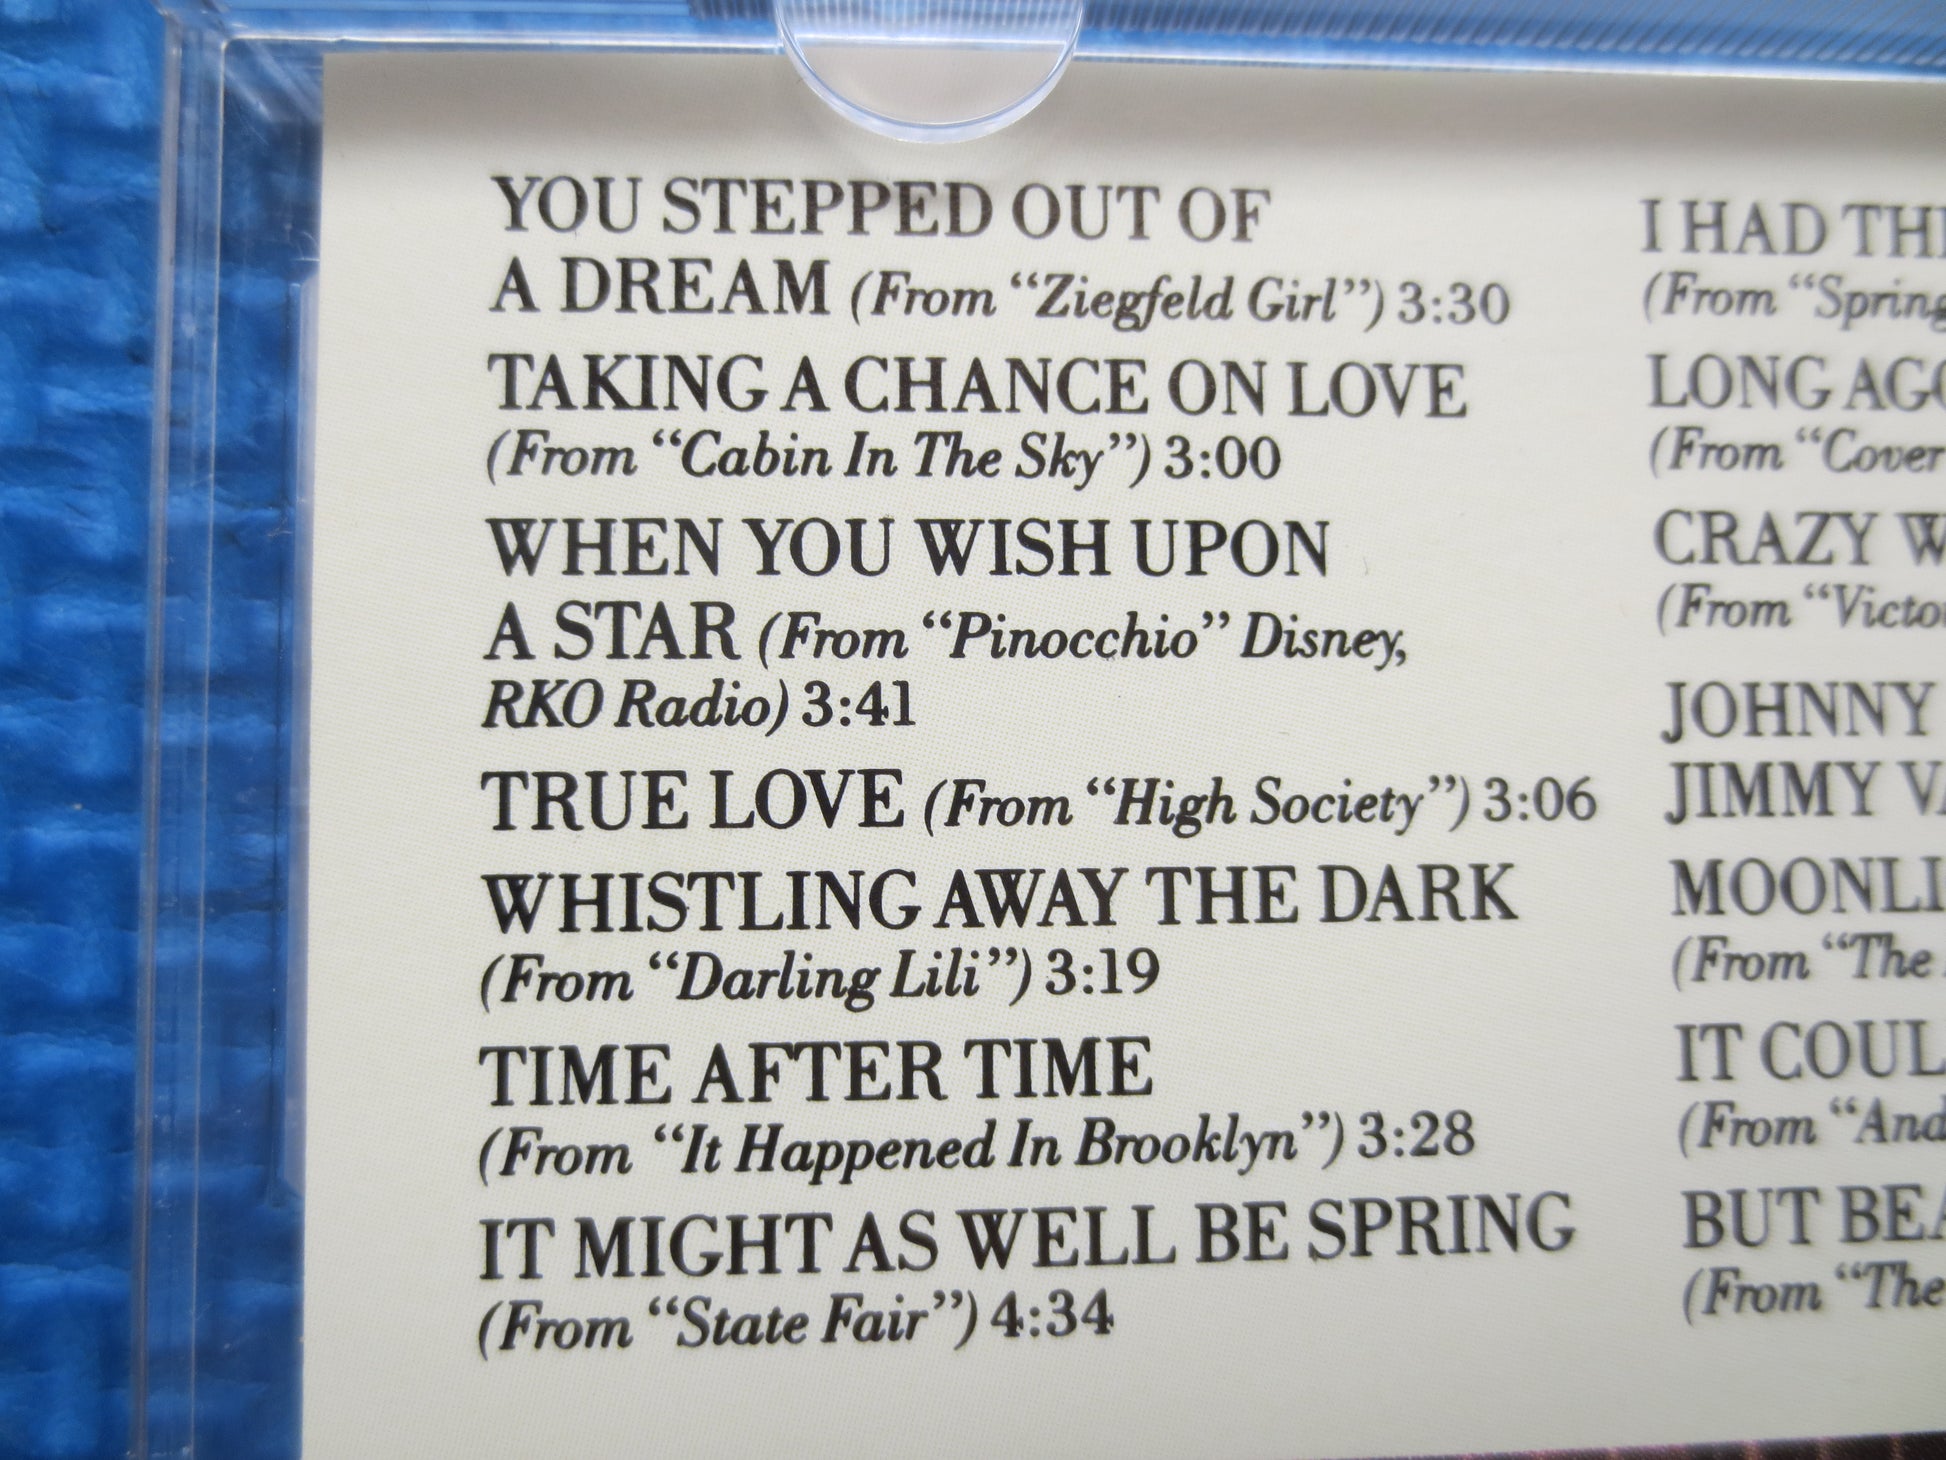 YOU STEPPED OUT OF
A DREAM (From “Ziegfeld Girl”) 3:30
TAKING A CHANCE ON LOVE
(From “Cabin In The Sky”) 3:00
WHEN YOU WISH UPON
A STAR (From “Pinocchio” Disney,
RKO Radio) 3:41
TRUE LOVE (From “High Society”) 3:06
WHISTLING AWAY THE DARK
(From “Darling Lili”) 3:19
TIME AFTER TIME
(From “It Happened In Brooklyn”) 3:28
IT MIGHT AS WELL BE SPRING
(From “State Fair”) 4:34
I HAD
(From “Spring
LONG AGO
(From “Cover
CRAZY
(From
JOHNNY
JIMMY
(From “The
IT
(From “And
BUT
(From “The